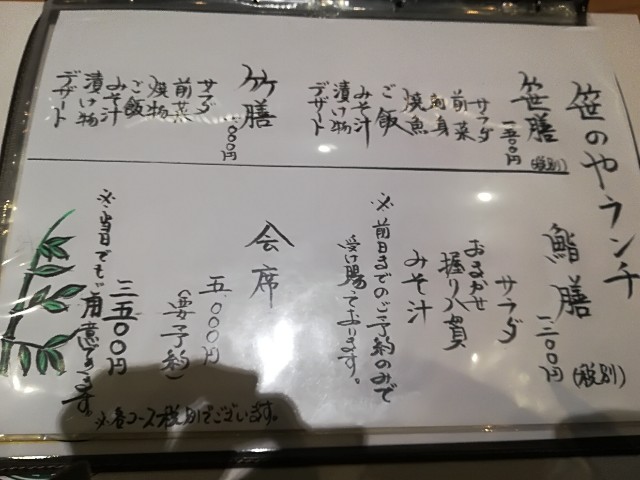 笹のやランチ
笹膳
一五〇〇円
(税別)
サラダ
前菜
刺身
焼魚
ご飯
みそ汁
漬け物
デザート
竹膳
サラダ
前菜
焼物
ご飯
みそ汁
漬け物
デザート
鮨膳
(税別)
サラダ
おまかせ
握り八貫
みそ汁
※前日までのご予約のみで
受け賜っております。
会席
五、〇〇〇円
(要予約)
三、五〇〇円
※当日でもご用意できます。
※各コース税別でございます。